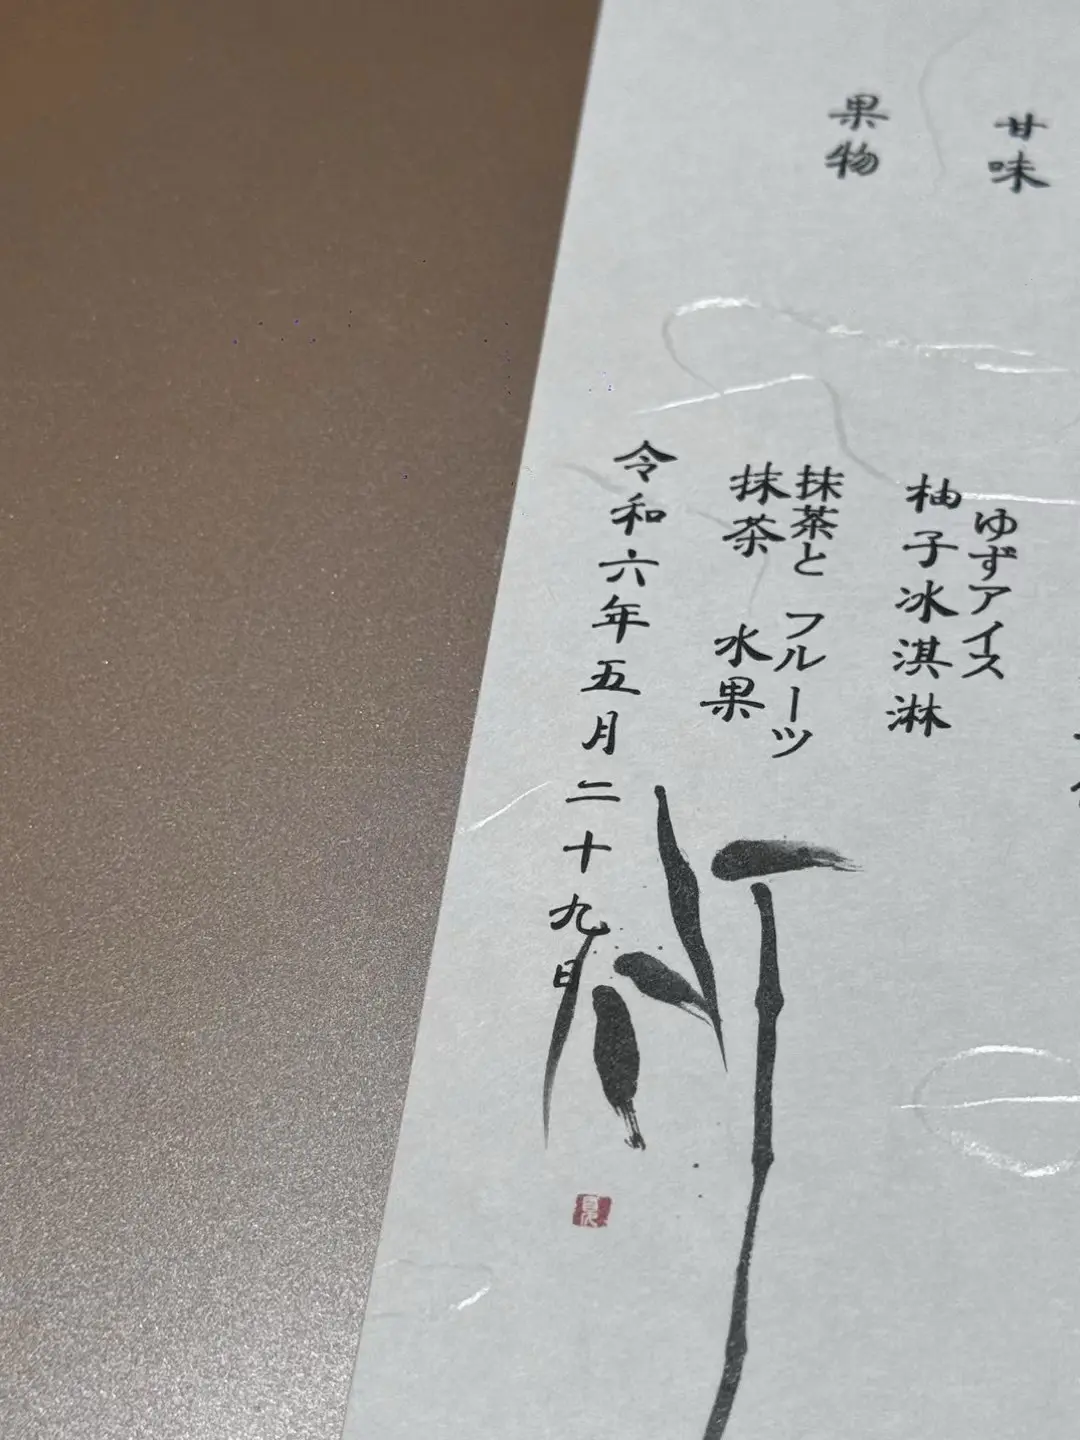 甘味
ゆずアイス
柚子冰淇淋
果物
抹茶と フルーツ
抹茶 水果
令和六年五月二十九日